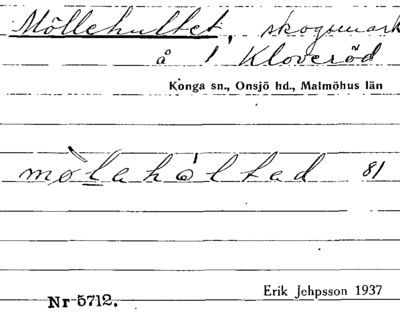 Möllehultet, skogsmark
å 1 Kloveröd
Konga sn., Onsjö hd., Malmöhus län
mø̀lahɷ́ltad 81
Nr 5712. Erik Jehpsson 1937